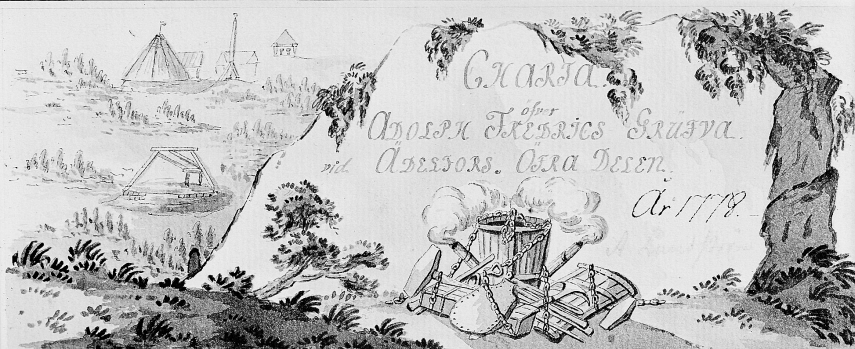 CHARTA.
öfver
ADOLPH FREDRICS GRUFVA
vid ÄDELFORS. ÖFRA DELEN.
År 1778.